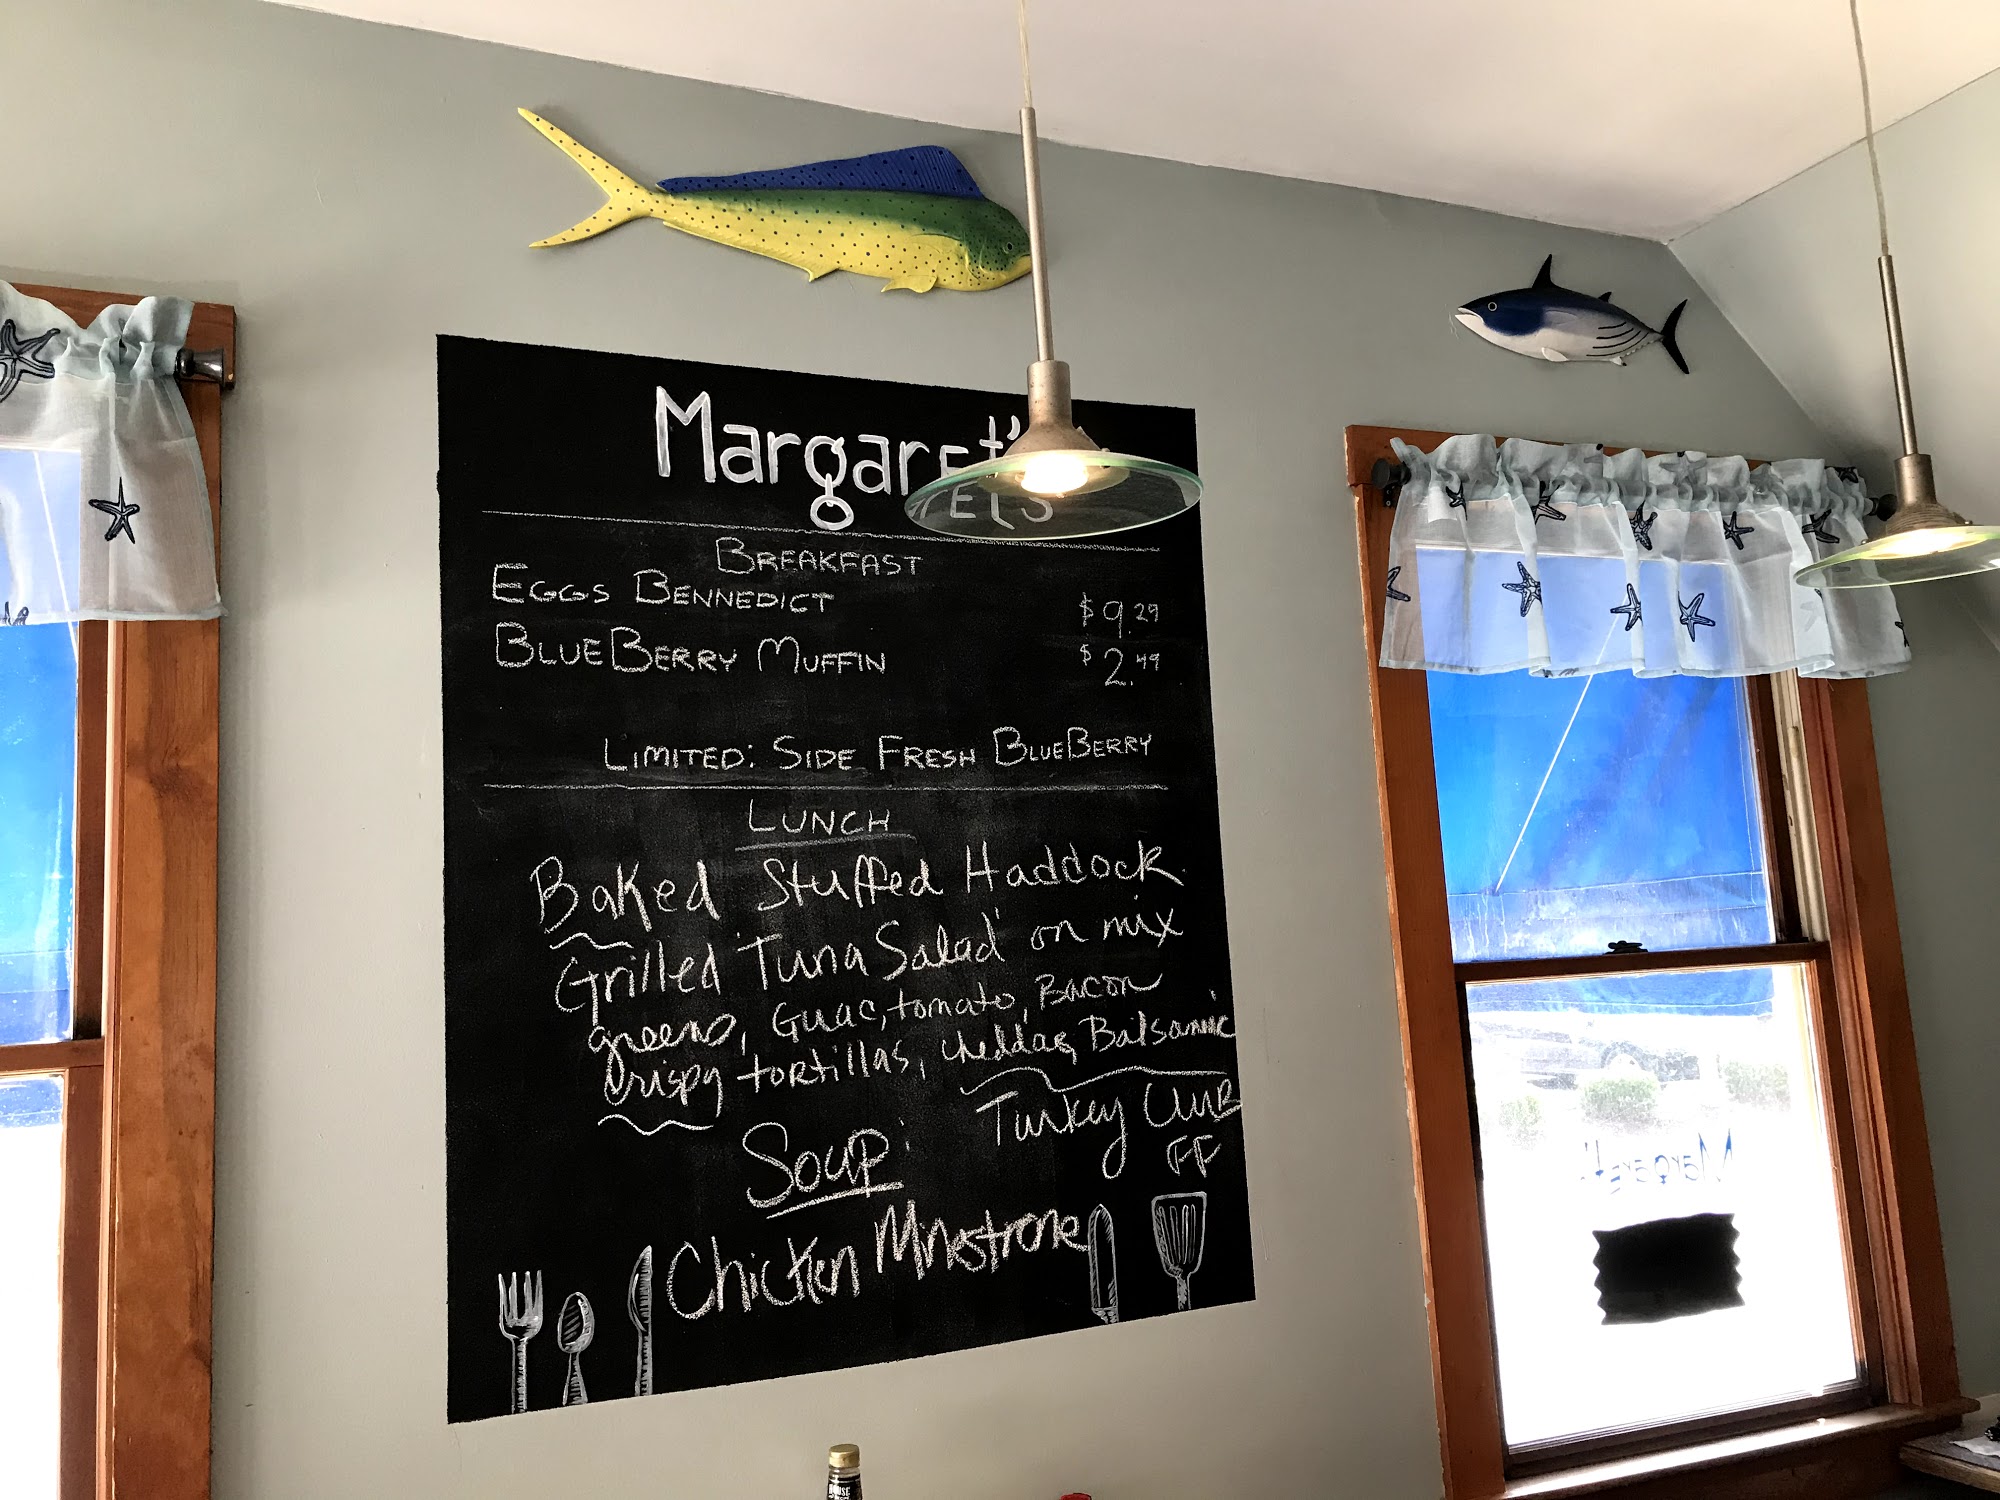 Margaret's
BREAKFAST
EGGS BENNEDICT $9.29
BLUEBERRY MUFFIN $2.49
LIMITED: SIDE FRESH BLUEBERRY
LUNCH
Baked Stuffed Haddock
Grilled Tuna Salad on mix
greens, Guac, tomato, Bacon
Crispy tortillas, cheddar, Balsamic
Turkey CluB
FF
Soup:
Chicken Minestrone
Margaret's
HOUSE